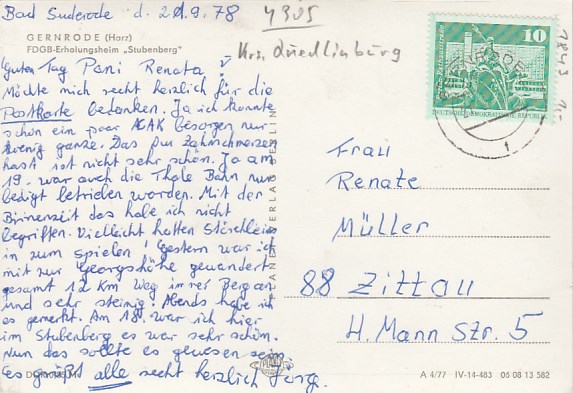 Bad Suderode d. 21.9.78
4305
GERNRODE (Harz)
FDGB-Erholungsheim „Stubenberg"
Krs. Quedlinburg
Guten Tag Pani Renata!
Möchte mich recht herzlich für die
Postkarte bedanken. Ja ich konnte
schon ein paar AGAK besorgen nur
wenig ganze. Das Du Zahnschmerzen
hast ist nicht sehr schön. Ja am
19. war auch die Thale Bahn nur
bedigt betrieben worden. Mit der
Birnenzeit das habe ich nicht
begriffen. Vielleicht hatten
in zum spielen! Gestern war ich
mit zur Georgshöhe gewandert
gesamt 12 Km Weg immer Bergan
und sehr steinig. Abends habe ich
es gemerkt. Am 18. war ich hier
im Stubenberg es war sehr schön.
Nun das sollte es gewesen sein
es grüßt alle recht herzlich Jörg.
10
DEUTSCHE DEMOKRATISCHE REPUBLIK
Frau
Renate
Müller
88 Zittau
H. Mann Str. 5
A 4/77 IV-14-483 06 08 13 582